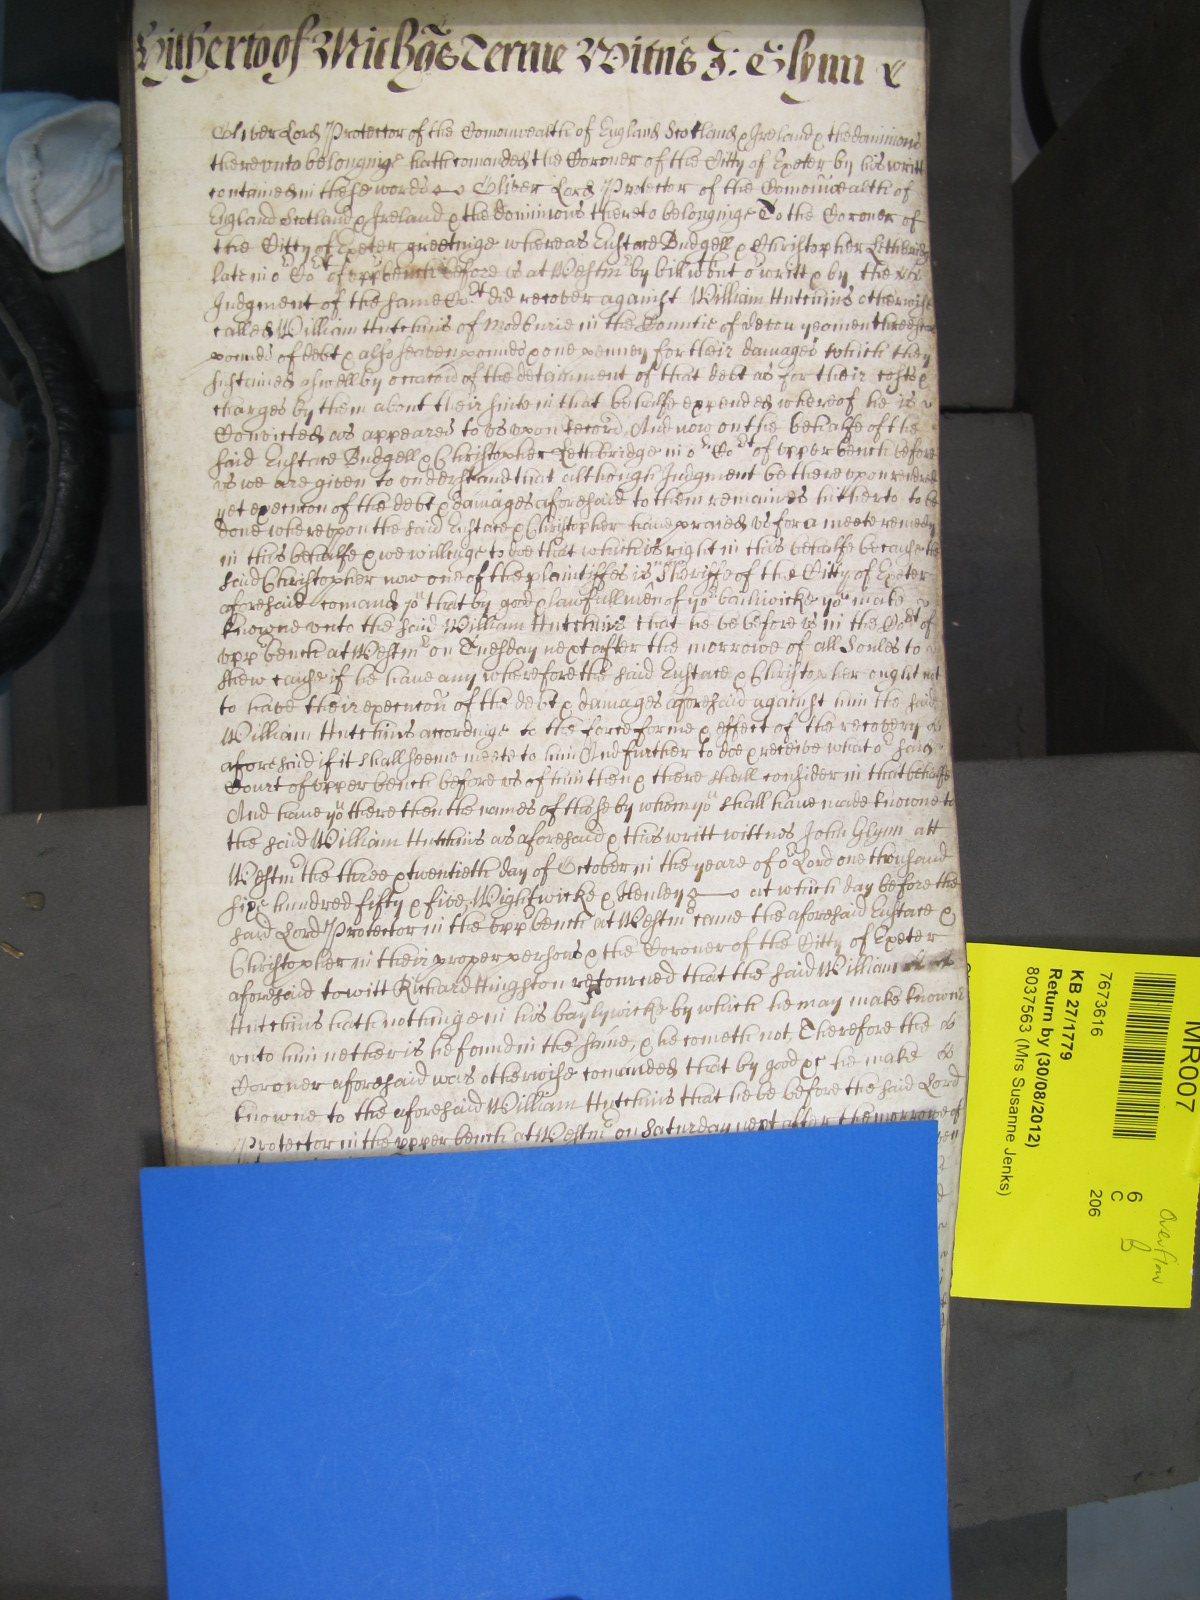 Hitherto of Michās Terme Witnẽs J: Glynn &
Oliver Lord Protector of the Comonwealth of England Scotland & Ireland & the dominions
thereunto belonginge hath comanded the Coroner of the Citty of Exeter by his writt
contained in these words Oliver Lord Protector of the Comonwealth of
England Scotland & Ireland & the dominions thereto belonginge To the Coroner of
the Citty of Exeter greetinge whereas Eustace Budgell & Christopher Lethbridge
late in oʳ Coʳᵗ of uppʳ bench before us at Westmʳ by bill wthout oʳ writt & by the
Judgment of the same Coʳᵗ did recover against William Hutchins otherwise
called William Hutchins of Modburie in the Countie of devon yeoman threescore
pounds of debt & also seaven pounds & one penney for their damages which they
sustained aswell by occacoñ of the detainment of that debt as for their costs &
charges by them about their suite in that behalfe expended whereof he is
Convicted as appeares to us upon record, And now on the behalfe of the
said Eustace Budgell & Christopher Lethbridge in oʳ Coʳᵗ of upper bench before
us we are given to understand that although Judgment be thereupon rendred
yet execucon of the debt & damages aforesaid to them remaines hitherto to be
done whereupon the said Eustace & Christopher have prayed us for a meete remedy
in this behalfe & we willinge to doe that which is right in this behalfe because the
said Christopher now one of the plaintiffes is Sheriffe of the Citty of Exeter
aforesaid comand yoᵘ that by good & lawfull men of yoʳ bailiwicke yoᵘ make
knowne unto the said William Hutchins that he be before us in the Coʳᵗ of
uppʳ bench at Westmʳ on Tuesday next after the morrowe of all Soules to
shew cause if he have any wherefore the said Eustace & Christopher ought not
to have their execucoñ of the debt & damages aforesaid against him the said
William Hutchins accordinge to the force forme & effect of the recovery
aforesaid if it shall seeme meete to him And further to doe & receive what oʳ said
Court of upper bench before us of him then & there shall consider in that behalfe
And have yoᵘ there then the names of those by whom yoᵘ shall have made knowne to
the said William Hutchins as aforesaid & this writt wittnes John Glynn att
Westmʳ the three & twentieth day of October in the yeare of oʳ Lord one thousand
six hundred fifty & five, Wightwicke & Henley at which day before the
said Lord Protector in the uppʳ bench at Westmʳ came the aforesaid Eustace &
Christopher in their proper persons & the Coroner of the Citty of Exeter
aforesaid to witt Richard Hingston retourned that the said William
Hutchins hath nothinge in his baylywicke by which he may make knowne
unto him nether is he found in the same, & he cometh not, Therefore the
Coroner aforesaid was otherwise comanded that by good &c he make
knowne to the aforesaid William Hutchins that he be before the said Lord
Protector in the upper bench at Westmʳ on Saturday next after the morrowe of
MR007
7673616
KB 27/1779
Return by (30/08/2012)
8037563 (Mrs Susanne Jenks)
6
C
206
Overflow